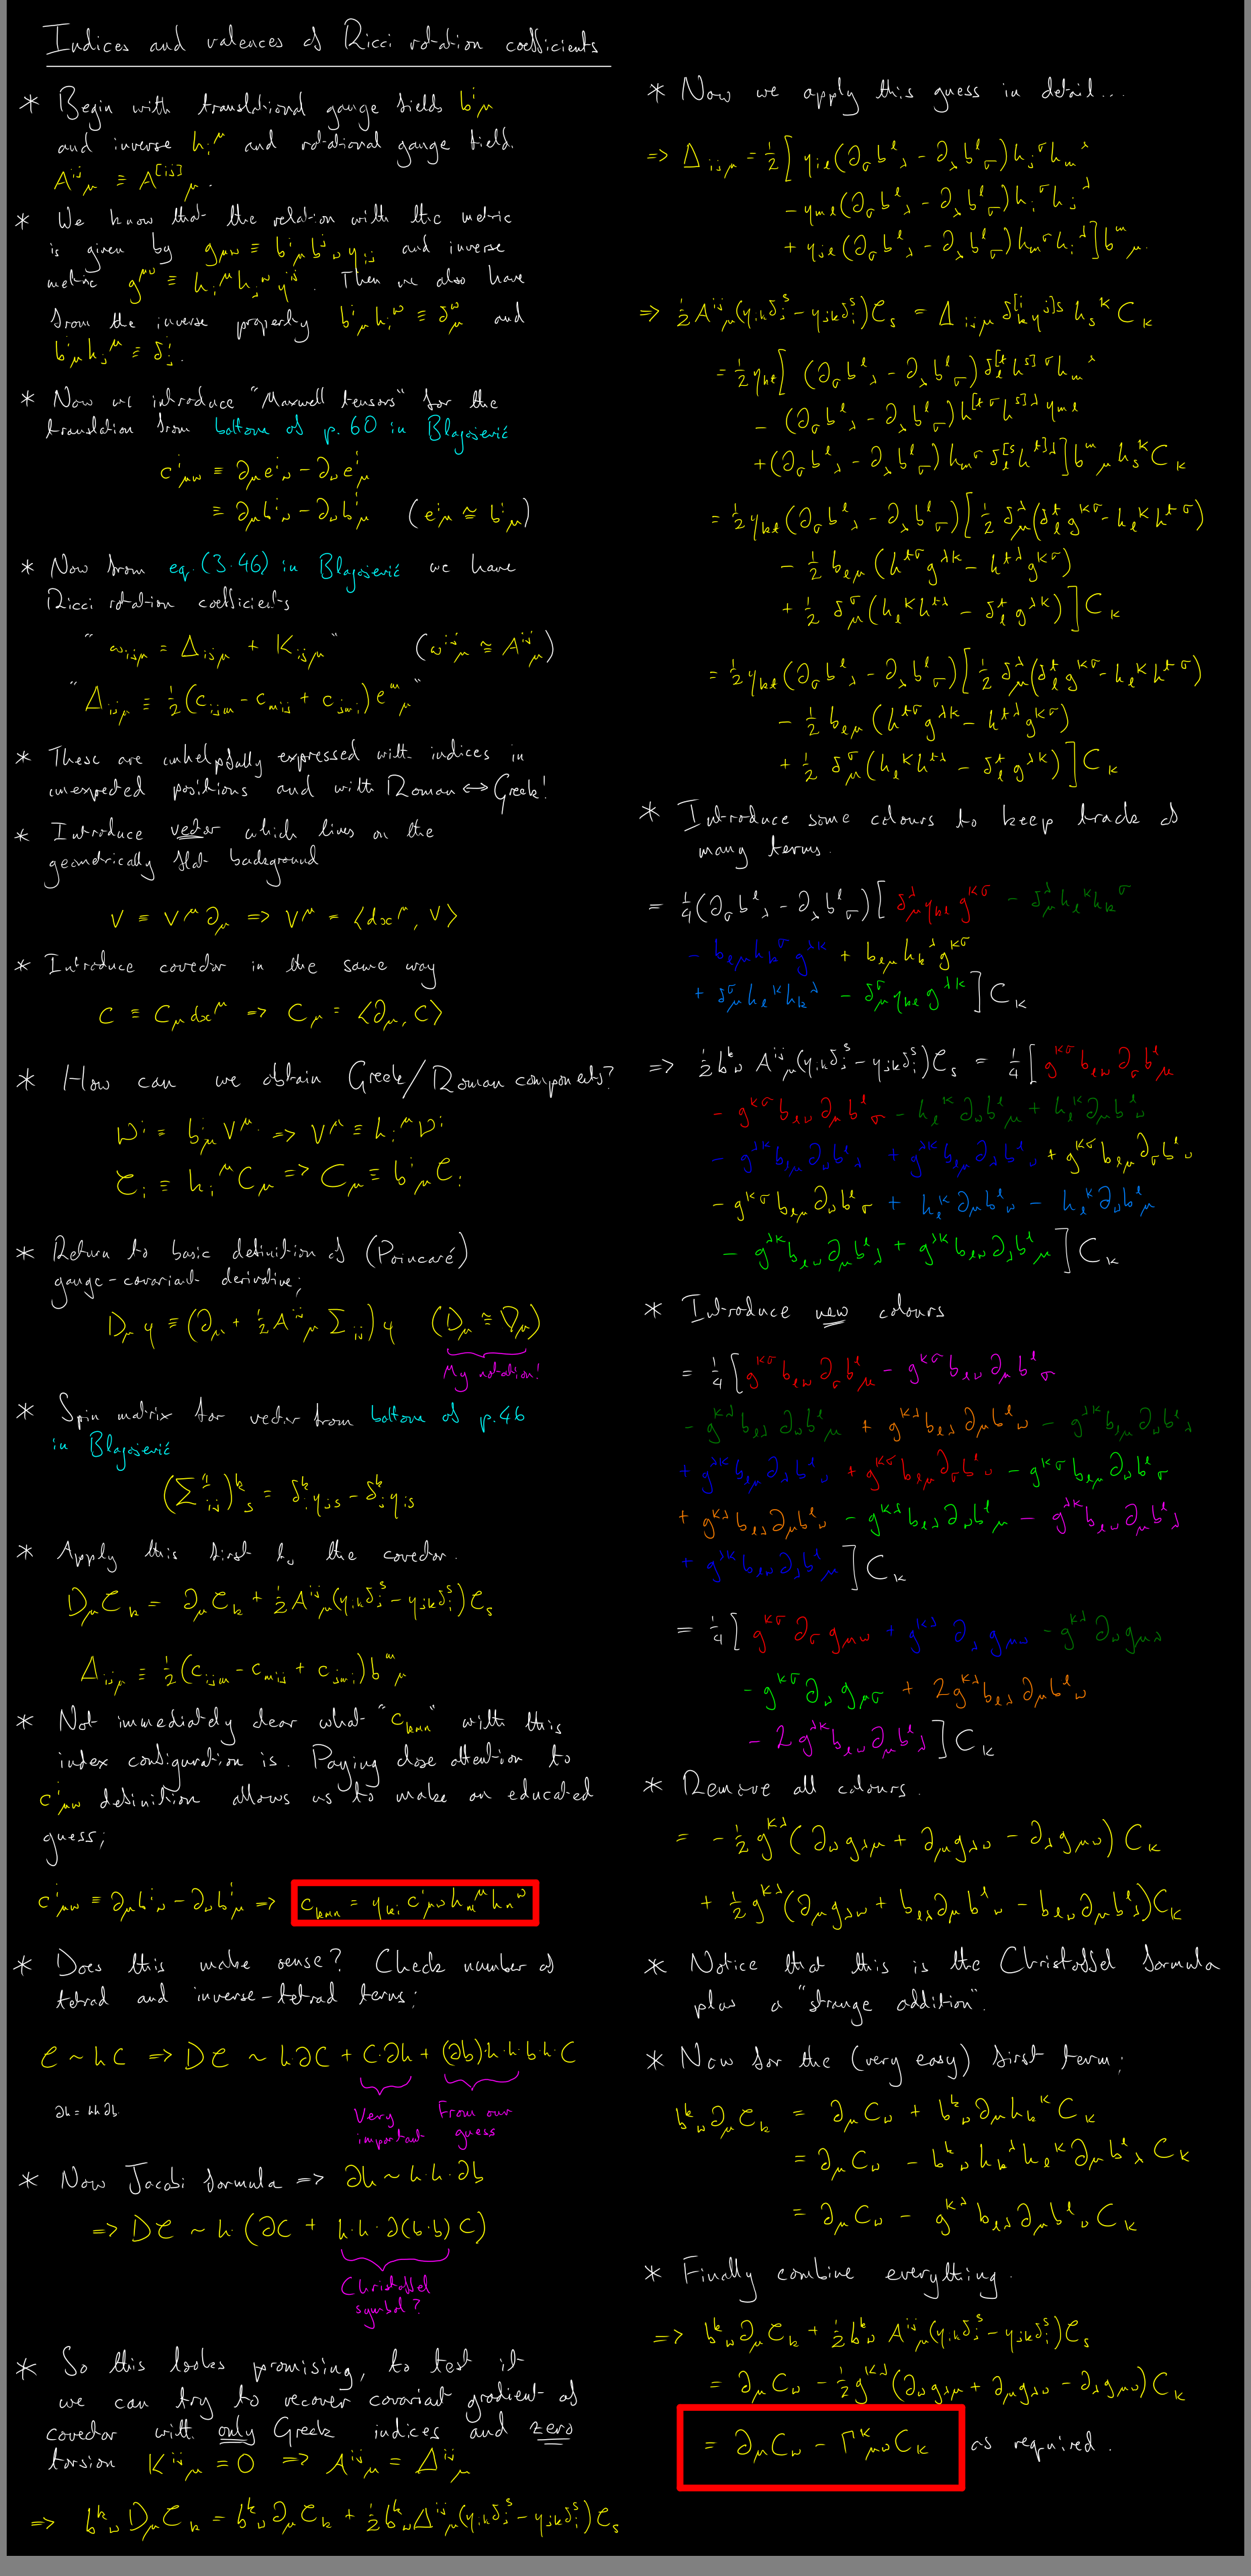 Indices and valences of Ricci rotation coefficients
* Begin with translational gauge fields b^i_μ
and inverse h_i^μ and rotational gauge field
A^{ij}_μ ≡ A^{[ij]}_μ.
* We know that the relation with the metric
is given by g_{μν} ≡ b^i_μ b^j_ν η_{ij} and inverse
metric g^{μν} ≡ h_i^μ h_j^ν η^{ij}. Then we also have
from the inverse property b^i_μ h_i^ν ≡ δ^ν_μ and
b^i_μ h_j^μ ≡ δ^i_j.
* Now we introduce "Maxwell tensors" for the
translation from bottome of p. 60 in Blagojević
c^i_{μν} ≡ ∂_μ e^i_ν - ∂_ν e^i_μ
≡ ∂_μ b^i_ν - ∂_ν b^i_μ (e^i_μ ≅ b^i_μ)
* Now from eq. (3.46) in Blagojević we have
Ricci rotation coefficients
"ω_{ijμ} = Δ_{ijμ} + K_{ijμ}" (ω^{ij}_μ ≅ A^{ij}_μ)
"Δ_{ijμ} ≡ ½(c_{ijm} - c_{mij} + c_{jmi}) e^m_μ"
* These are unhelpfully expressed with indices in
unexpected positions and with Roman ↔ Greek!
* Introduce vector which lives on the
geometrically flat background
V ≡ V^μ ∂_μ => V^μ = ⟨dx^μ, V⟩
* Introduce covector in the same way
C ≡ C_μ dx^μ => C_μ = ⟨∂_μ, C⟩
* How can we obtain Greek/Roman components?
𝒱^i = b^i_μ V^μ => V^μ ≡ h_i^μ 𝒱^i
𝒞_i ≡ h_i^μ C_μ => C_μ ≡ b^i_μ 𝒞_i
* Return to basic definition of (Poincaré)
gauge-covariant derivative;
D_μ φ ≡ (∂_μ + ½ A^{ij}_μ Σ_{ij}) φ (D_μ ≅ ∇_μ)
My notation!
* Spin matrix for vector from bottome of p.46
in Blagojević
(Σ^1_{ij})^k_s = δ^k_i η_{js} - δ^k_j η_{is}
* Apply this first to the covector.
D_μ 𝒞_k = ∂_μ 𝒞_k + ½ A^{ij}_μ (η_{ik} δ^s_j - η_{jk} δ^s_i) 𝒞_s
Δ_{ijμ} ≡ ½(c_{ijm} - c_{mij} + c_{jmi}) b^m_μ
* Not immediately clear what "c_{kmn}" with this
index configuration is. Paying close attention to
c^i_{μν} definition allows us to make an educated
guess;
c^i_{μν} ≡ ∂_μ b^i_ν - ∂_ν b^i_μ => c_{kmn} = η_{ki} c^i_{μν} h_m^μ h_n^ν
* Does this make sense? Check number of
tetrad and inverse-tetrad terms;
𝒞 ~ hC => D𝒞 ~ h∂C + C·∂h + (∂b)·h·h·b·h·C
∂h = hh∂b
Very important
From our guess
* Now Jacobi formula => ∂h ~ h·h·∂b
=> D𝒞 ~ h·(∂C + h·h·∂(b·b) C)
Christoffel symbol?
* So this looks promising, to test it
we can try to recover covariant gradient of
covector with only Greek indices and zero
torsion K^{ij}_μ = 0 => A^{ij}_μ = Δ^{ij}_μ
=> b^k_ν D_μ 𝒞_k = b^k_ν ∂_μ 𝒞_k + ½ b^k_ν Δ^{ij}_μ (η_{ik} δ^s_j - η_{jk} δ^s_i) 𝒞_s
* Now we apply this guess in detail...
=> Δ_{ijμ} = ½[η_{il}(∂_σ b^l_λ - ∂_λ b^l_σ) h_j^σ h_m^λ
- η_{ml}(∂_σ b^l_λ - ∂_λ b^l_σ) h_i^σ h_j^λ
+ η_{jl}(∂_σ b^l_λ - ∂_λ b^l_σ) h_m^σ h_i^λ] b^m_μ.
=> ½ A^{ij}_μ (η_{ik} δ^s_j - η_{jk} δ^s_i) 𝒞_s = Δ_{ijμ} δ^{[i}_k η^{j]s} h_s^κ C_κ
= ½ η_{kt}[(∂_σ b^l_λ - ∂_λ b^l_σ) δ^{[t}_l h^{s]σ} h_m^λ
- (∂_σ b^l_λ - ∂_λ b^l_σ) h^{[tσ} h^{s]λ} η_{ml}
+ (∂_σ b^l_λ - ∂_λ b^l_σ) h_m^σ δ^{[s}_l h^{t]λ}] b^m_μ h_s^κ C_κ
= ½ η_{kt}(∂_σ b^l_λ - ∂_λ b^l_σ)[½ δ^λ_μ (δ^t_l g^{κσ} - h_l^κ h^{tσ})
- ½ b_{lμ} (h^{tσ} g^{λκ} - h^{tλ} g^{κσ})
+ ½ δ^σ_μ (h_l^κ h^{tλ} - δ^t_l g^{λκ})] C_κ
= ½ η_{kt}(∂_σ b^l_λ - ∂_λ b^l_σ)[½ δ^λ_μ (δ^t_l g^{κσ} - h_l^κ h^{tσ})
- ½ b_{lμ} (h^{tσ} g^{λκ} - h^{tλ} g^{κσ})
+ ½ δ^σ_μ (h_l^κ h^{tλ} - δ^t_l g^{λκ})] C_κ
* Introduce some colours to keep track of
many terms.
= ¼(∂_σ b^l_λ - ∂_λ b^l_σ)[δ^λ_μ η_{kl} g^{κσ} - δ^λ_μ h_l^κ h_k^σ
- b_{lμ} h_k^σ g^{λκ} + b_{lμ} h_k^λ g^{κσ}
+ δ^σ_μ h_l^κ h_k^λ - δ^σ_μ η_{kl} g^{λκ}] C_κ
=> ½ b^k_ν A^{ij}_μ (η_{ik} δ^s_j - η_{jk} δ^s_i) 𝒞_s = ¼[g^{κσ} b_{lν} ∂_σ b^l_μ
- g^{κσ} b_{lν} ∂_μ b^l_σ - h_l^κ ∂_ν b^l_μ + h_l^κ ∂_μ b^l_ν
- g^{λκ} b_{lμ} ∂_ν b^l_λ + g^{λκ} b_{lμ} ∂_λ b^l_ν + g^{κσ} b_{lμ} ∂_σ b^l_ν
- g^{κσ} b_{lμ} ∂_ν b^l_σ + h_l^κ ∂_μ b^l_ν - h_l^κ ∂_ν b^l_μ
- g^{λκ} b_{lν} ∂_μ b^l_λ + g^{λκ} b_{lν} ∂_λ b^l_μ] C_κ
* Introduce new colours
= ¼[g^{κσ} b_{lν} ∂_σ b^l_μ - g^{κσ} b_{lν} ∂_μ b^l_σ
- g^{κλ} b_{lλ} ∂_ν b^l_μ + g^{κλ} b_{lλ} ∂_μ b^l_ν - g^{λκ} b_{lμ} ∂_ν b^l_λ
+ g^{λκ} b_{lμ} ∂_λ b^l_ν + g^{κσ} b_{lμ} ∂_σ b^l_ν - g^{κσ} b_{lμ} ∂_ν b^l_σ
+ g^{κλ} b_{lλ} ∂_μ b^l_ν - g^{κλ} b_{lλ} ∂_ν b^l_μ - g^{λκ} b_{lν} ∂_μ b^l_λ
+ g^{λκ} b_{lν} ∂_λ b^l_μ] C_κ
= ¼[g^{κσ} ∂_σ g_{μν} + g^{κλ} ∂_λ g_{μν} - g^{κλ} ∂_ν g_{μλ}
- g^{κσ} ∂_ν g_{μσ} + 2g^{κλ} b_{lλ} ∂_μ b^l_ν
- 2g^{λκ} b_{lν} ∂_μ b^l_λ] C_κ
* Remove all colours.
= -½ g^{κλ}(∂_ν g_{λμ} + ∂_μ g_{λν} - ∂_λ g_{μν}) C_κ
+ ½ g^{κλ}(∂_μ g_{λν} + b_{lλ} ∂_μ b^l_ν - b_{lν} ∂_μ b^l_λ) C_κ
* Notice that this is the Christoffel formula
plus a "strange addition".
* Now for the (very easy) first term;
b^k_ν ∂_μ 𝒞_k = ∂_μ C_ν + b^k_ν ∂_μ h_k^κ C_κ
= ∂_μ C_ν - b^k_ν h_k^λ h_l^κ ∂_μ b^l_λ C_κ
= ∂_μ C_ν - g^{κλ} b_{lλ} ∂_μ b^l_ν C_κ
* Finally combine everything.
=> b^k_ν ∂_μ 𝒞_k + ½ b^k_ν A^{ij}_μ (η_{ik} δ^s_j - η_{jk} δ^s_i) 𝒞_s
= ∂_μ C_ν - ½ g^{κλ}(∂_ν g_{λμ} + ∂_μ g_{λν} - ∂_λ g_{μν}) C_κ
= ∂_μ C_ν - Γ^κ_{μν} C_κ as required.